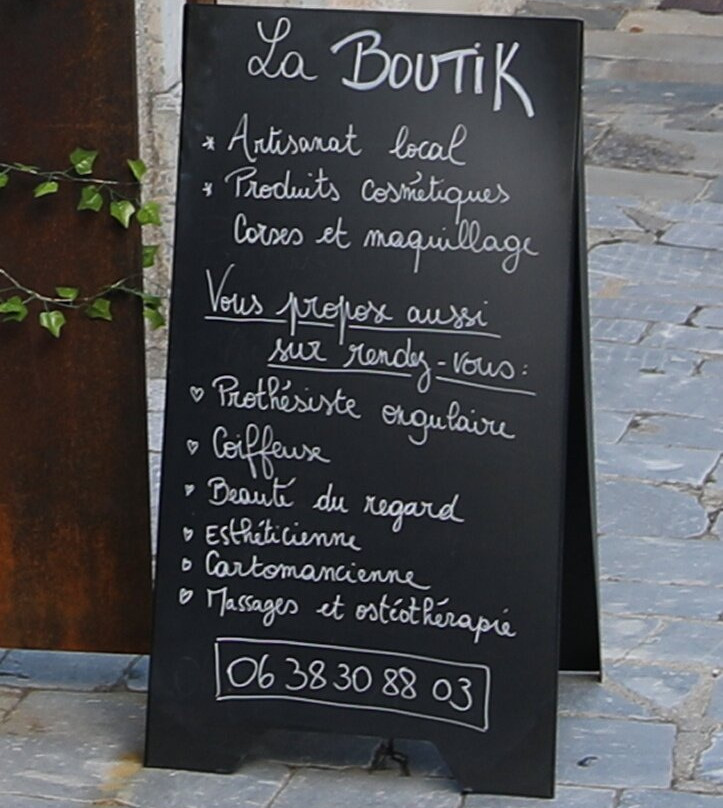 La BOUTIK
* Artisanat local
* Produits cosmétiques
Corses et maquillage
Vous propose aussi
sur rendez-vous:
♡ Prothésiste ongulaire
♡ Coiffeuse
♡ Beauté du regard
♡ Esthéticienne
♡ Cartomancienne
♡ Massages et ostéothérapie
06 38 30 88 03